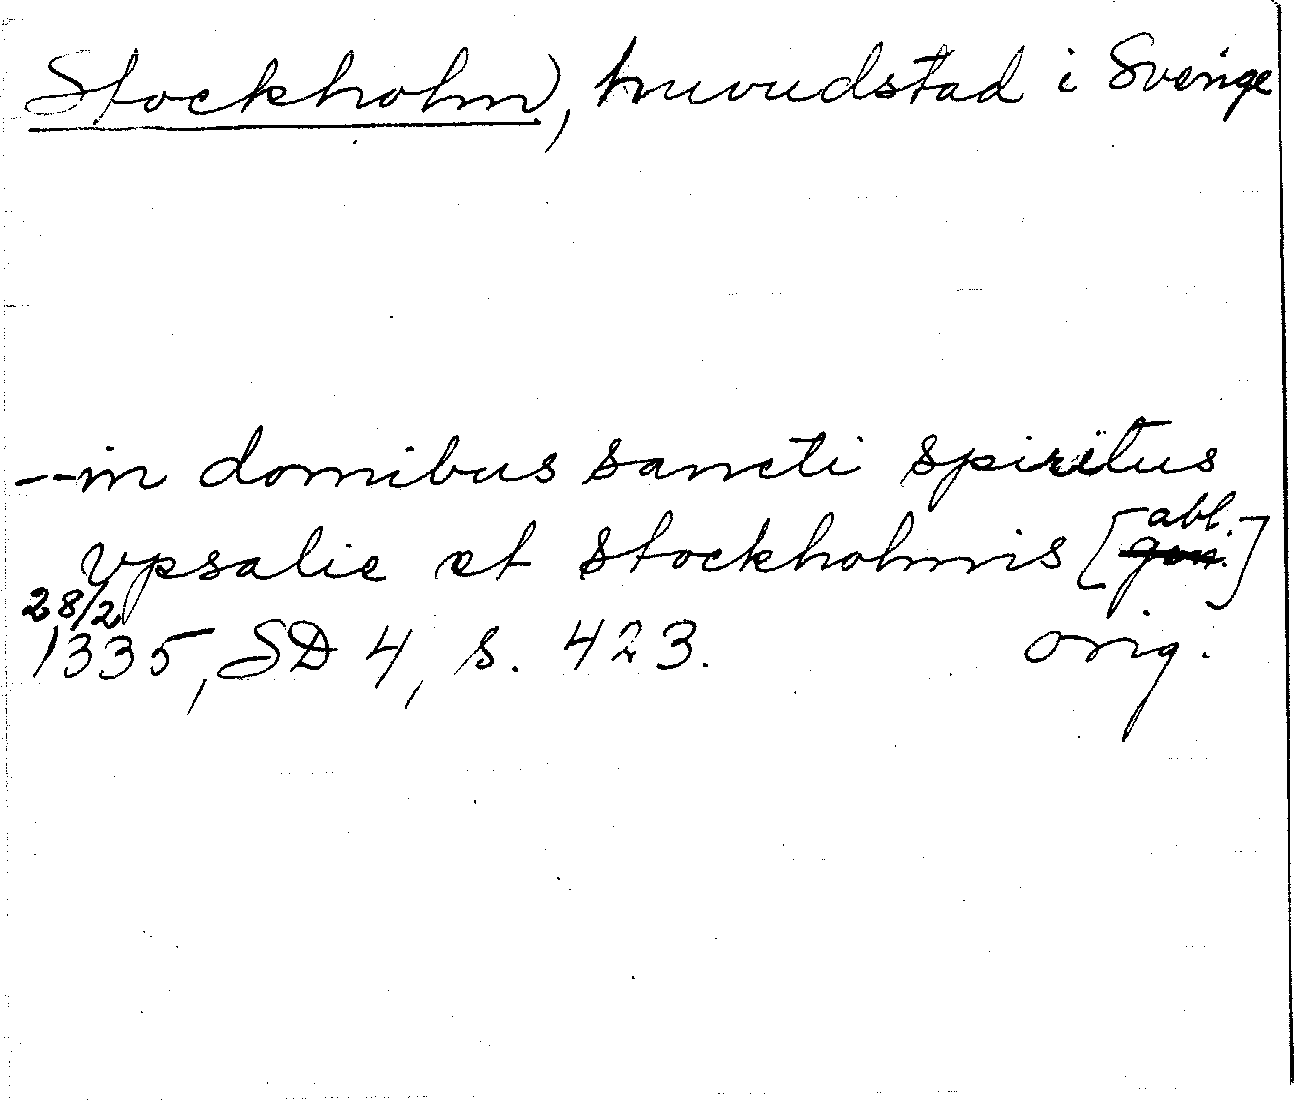 Stockholm, huvudstad i Sverige
--in domibus sancti spiritus
vpsalie et stockholmis [abl. gen.]
28/2
1335, SD 4, s. 423. orig.